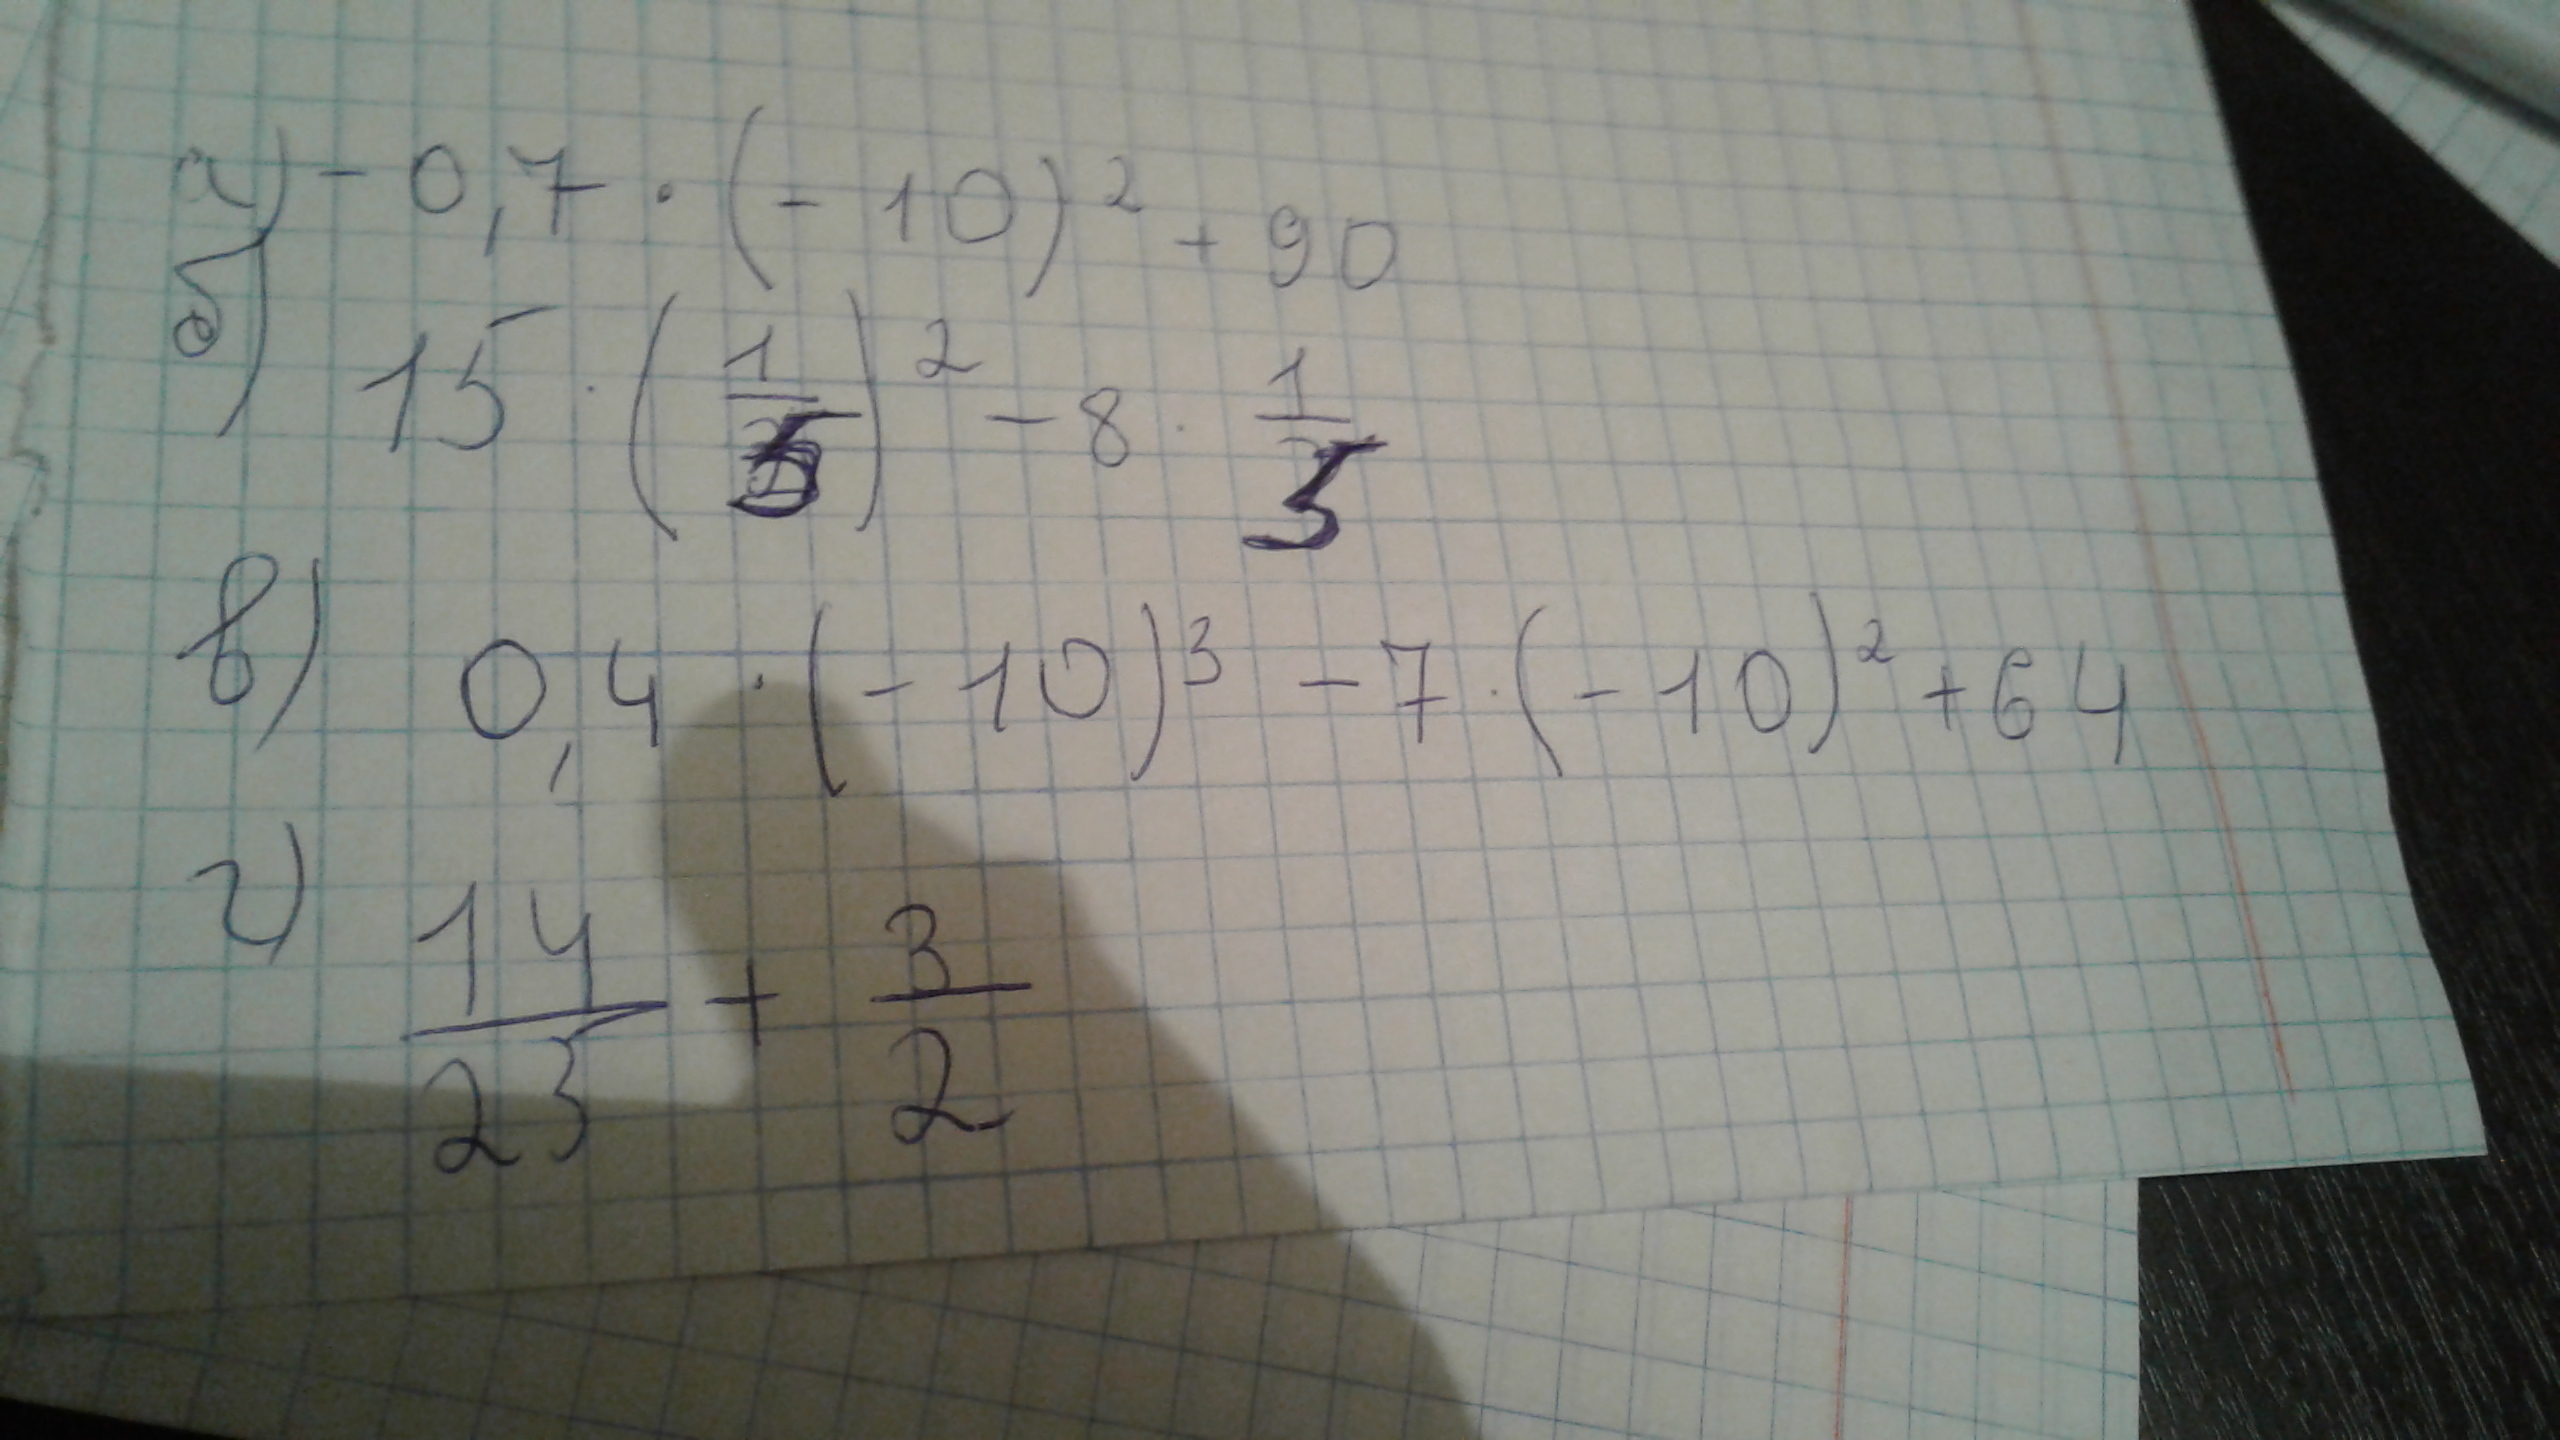 а) - 0,7 · (-10)² + 90
б) 15 · (1/5)² - 8 · 1/5
в) 0,4 · (-10)³ - 7 · (-10)² + 64
г) 14/25 + 3/2